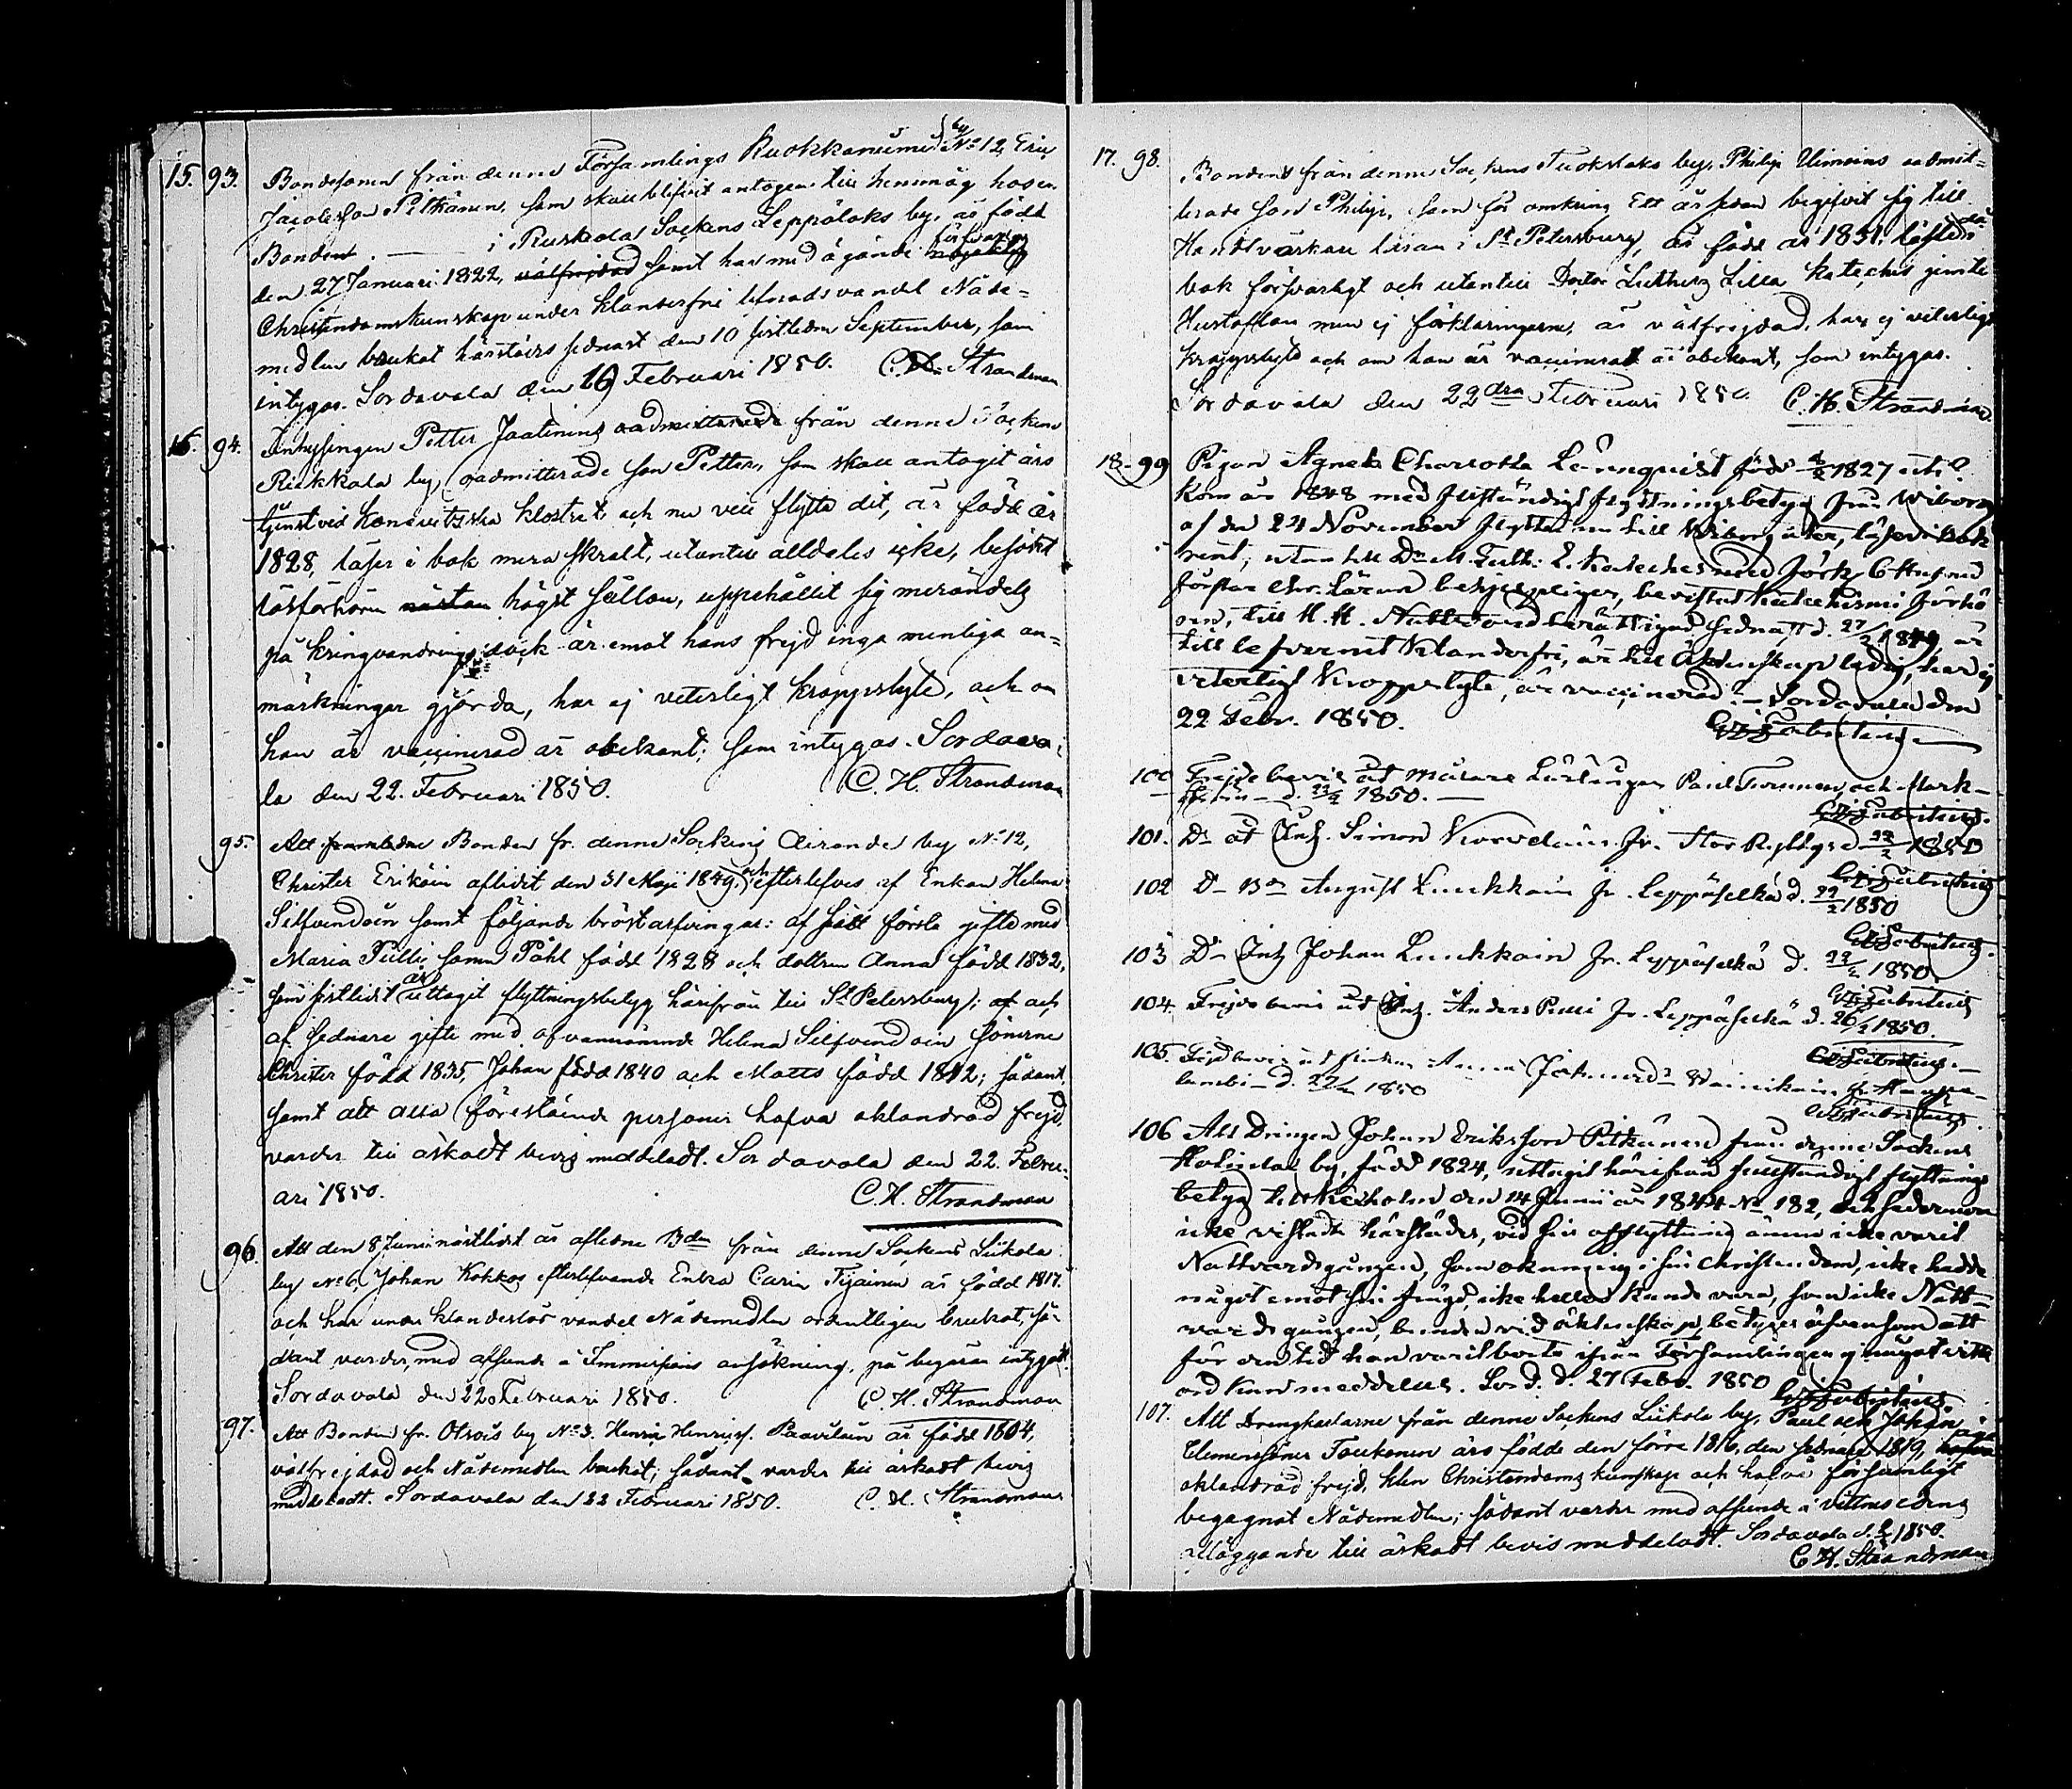 15. 93. Bondesonen från denne Församlings Ruokkanummi by No 12, Eric
Jacobsson Pitkänen, som skall blifvit antagen till hemmåg hos en
Bonden — i Ruskeala Sockens Leppälaks by, är född
den 27 Januari 1822, välfrejdad samt har med ägande försvarlig
Christendomskunskap under klanderfri lefnadsvandel Nåde-
medlen brukat härstädes sednast den 10 sistledne September, som
intygas. Sordavala den 19 Februari 1850. C. H. Strandman
16. 94. Inhysingen Petter Jaatinens oadmitterade från denne Sockens
Riekkala by oadmitterade son Petter, som skall antagit års
tjenst vid Konevitska klostret och nu vill flytta dit, är född år
1828, läser i bok mera skralt, utantill alldeles icke, besökt
läsförhören nästan högst sällan, uppehållit sig merendels
på kringvandring, dock är emot hans frejd inga menliga an-
märkningar gjorda, har ej veterligt kroppslyte, och om
han är vaccinerad är obekant; som intygas. Sordava-
la den 22. Februari 1850. C. H. Strandman
95. Att framledne Bonden fr. denne Sockens Airanda by No 12,
Christer Eriköin aflidit den 31 Maji 1849, och efterlefves af Enkan Helena
Silfvendoin samt följande bröstarfvingar: af sitt första gifte med
Maria Pulli sonen Påhl född 1828 och dottren Anna född 1832,
som sistlidit år uttagit flyttningsbetyg härifrån till St Petersburg; af och
af sednare gifte med ofvannämnde Helena Silfvendoin sönerne
Christer född 1835, Johan född 1840 och Matts född 1842; sådant
samt att alla förestående personer hafva oklandrad frejd,
varder till äskadt bevis meddeladt. Sordavala den 22. Febru-
ari 1850. C. H. Strandman
96. Att den 8 Junii nästlidit år aflidne Bden från denne Sockens Liikola
by No 6, Johan Kokkos efterlefvande Enka Carin Tijainen är född 1817.
och har under klanderlös vandel Nådemedlen ordentligen brukat, så-
dant varder, med afseende å Immissions ansökning, på begäran intygadt.
Sordavala den 22. Februari 1850. C. H. Strandman
97. Att Bonden fr. Otsois by No 3. Henric Henricss. Paavilain är född 1804,
välfrejdad och Nådemedlen brukat; sådant varder till äskadt bevis
meddeladt. Sordavala den 22 Februari 1850. C. H. Strandman
17. 98. Bondens från denne Sockens Tuokslaks by, Philip Uimoins oadmit-
terade son Philip, som för omkring Ett år sedan begifvit sig till
Handtvärkare läran i St Petersburg, är född år 1831. läste då i
bok försvarligt och utantill Doctor Luthers Lilla Kateches jemte
Hustaflan men ej förklaringarne, är välfrejdad, har ej veterligt
kroppslyte och om han är vaccinerad är obekant, som intygas.
Sordavala den 22dra Februari 1850. C. H. Strandman.
18. 99 Pigan Agneta Charlotta Lönnquist född 1827 uti ?
Kom år 1848 med fullständigt flyttningsbetyg från Wiborg
af den 24 November flyttar nu till Wiborg åter, läser i bok
rent, utan till Dr M. Luth. L. Kateches med förk. Hustaf. med
förstår Chr. Läran behjelpligen, bevistat Katechismi förhö
ren, till H. H. Nattvard berättigad sednast d. 27/2 1849, är
till lefvernet klanderfri, är till äktenskap ledig, har ej
veterligt kroppslyte, är vaccinerad. — Sordavala den
22 Febr. 1850.
100 Frejdebevis åt målare Lärlingen Paul Turunen, och Mark-
d. 22/2 1850. —
101. Do åt Inh. Simon fr. Stor d. 22/2 1850
102 Do Bdn August Luukkain fr. Leppäselkä d. 22/2 1850
103 Do Inh Johan Luukkain fr. Leppäselkä d. 22/2 1850.
104. Frejdebevis åt Inh. Anders Pulli fr. Leppäselkä d. 26/2 1850.
105. Frejdbevis åt Enkan Anna Johansdr Wainikain fr. Haapa-
lambi — d. 27/2 1850
106 Att Drengen Johan Eriksson Pitkänen från denne Sockens
by, född 1824, uttagit härifrån fullständigt flyttnings
betyg till Kexholm den 14 Junii år 1844 No 182, och sedermera
icke vistats härstädes, vid sin afflyttning ännu icke varit
Nattvardsgången, som okunnig i sin Christendom, icke hade
något emot sin frejd, icke heller kunde vara, som icke Natt-
vardsgången, bunden vid äktenskap, betygas äfvensom att
för den tid han varit borta ifrån Församlingen ej något vits
ord kan meddelas. Sord. d. 27 Febr. 1850
107. Att Drengkarlarne från denne Sockens Liikola by, Paul och Johan
Clemenssöner Toukonen äro födde den förre 1816, den sednare 1819, äga
oklandrad frejd, klen Christendoms kunskap och hafva försumligt
begagnat Nådemedlen; sådant varder med afseende å vittnes edens
afläggande till äskadt bevis meddeladt. Sordavala d. 1850.
C. H. Strandman